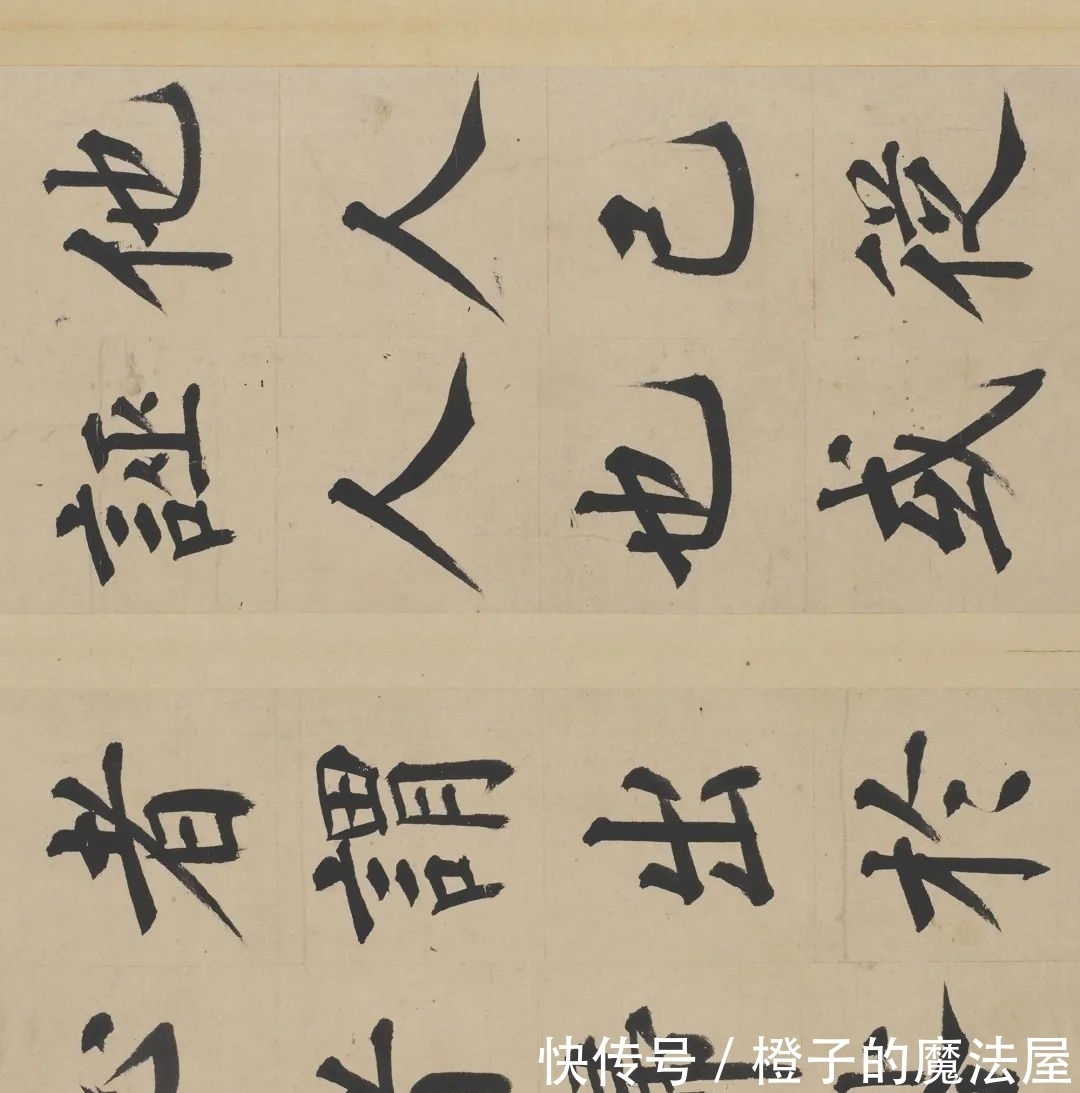 他人己從
誣人也或
者謂出於
快传号 / 橙子的魔法屋